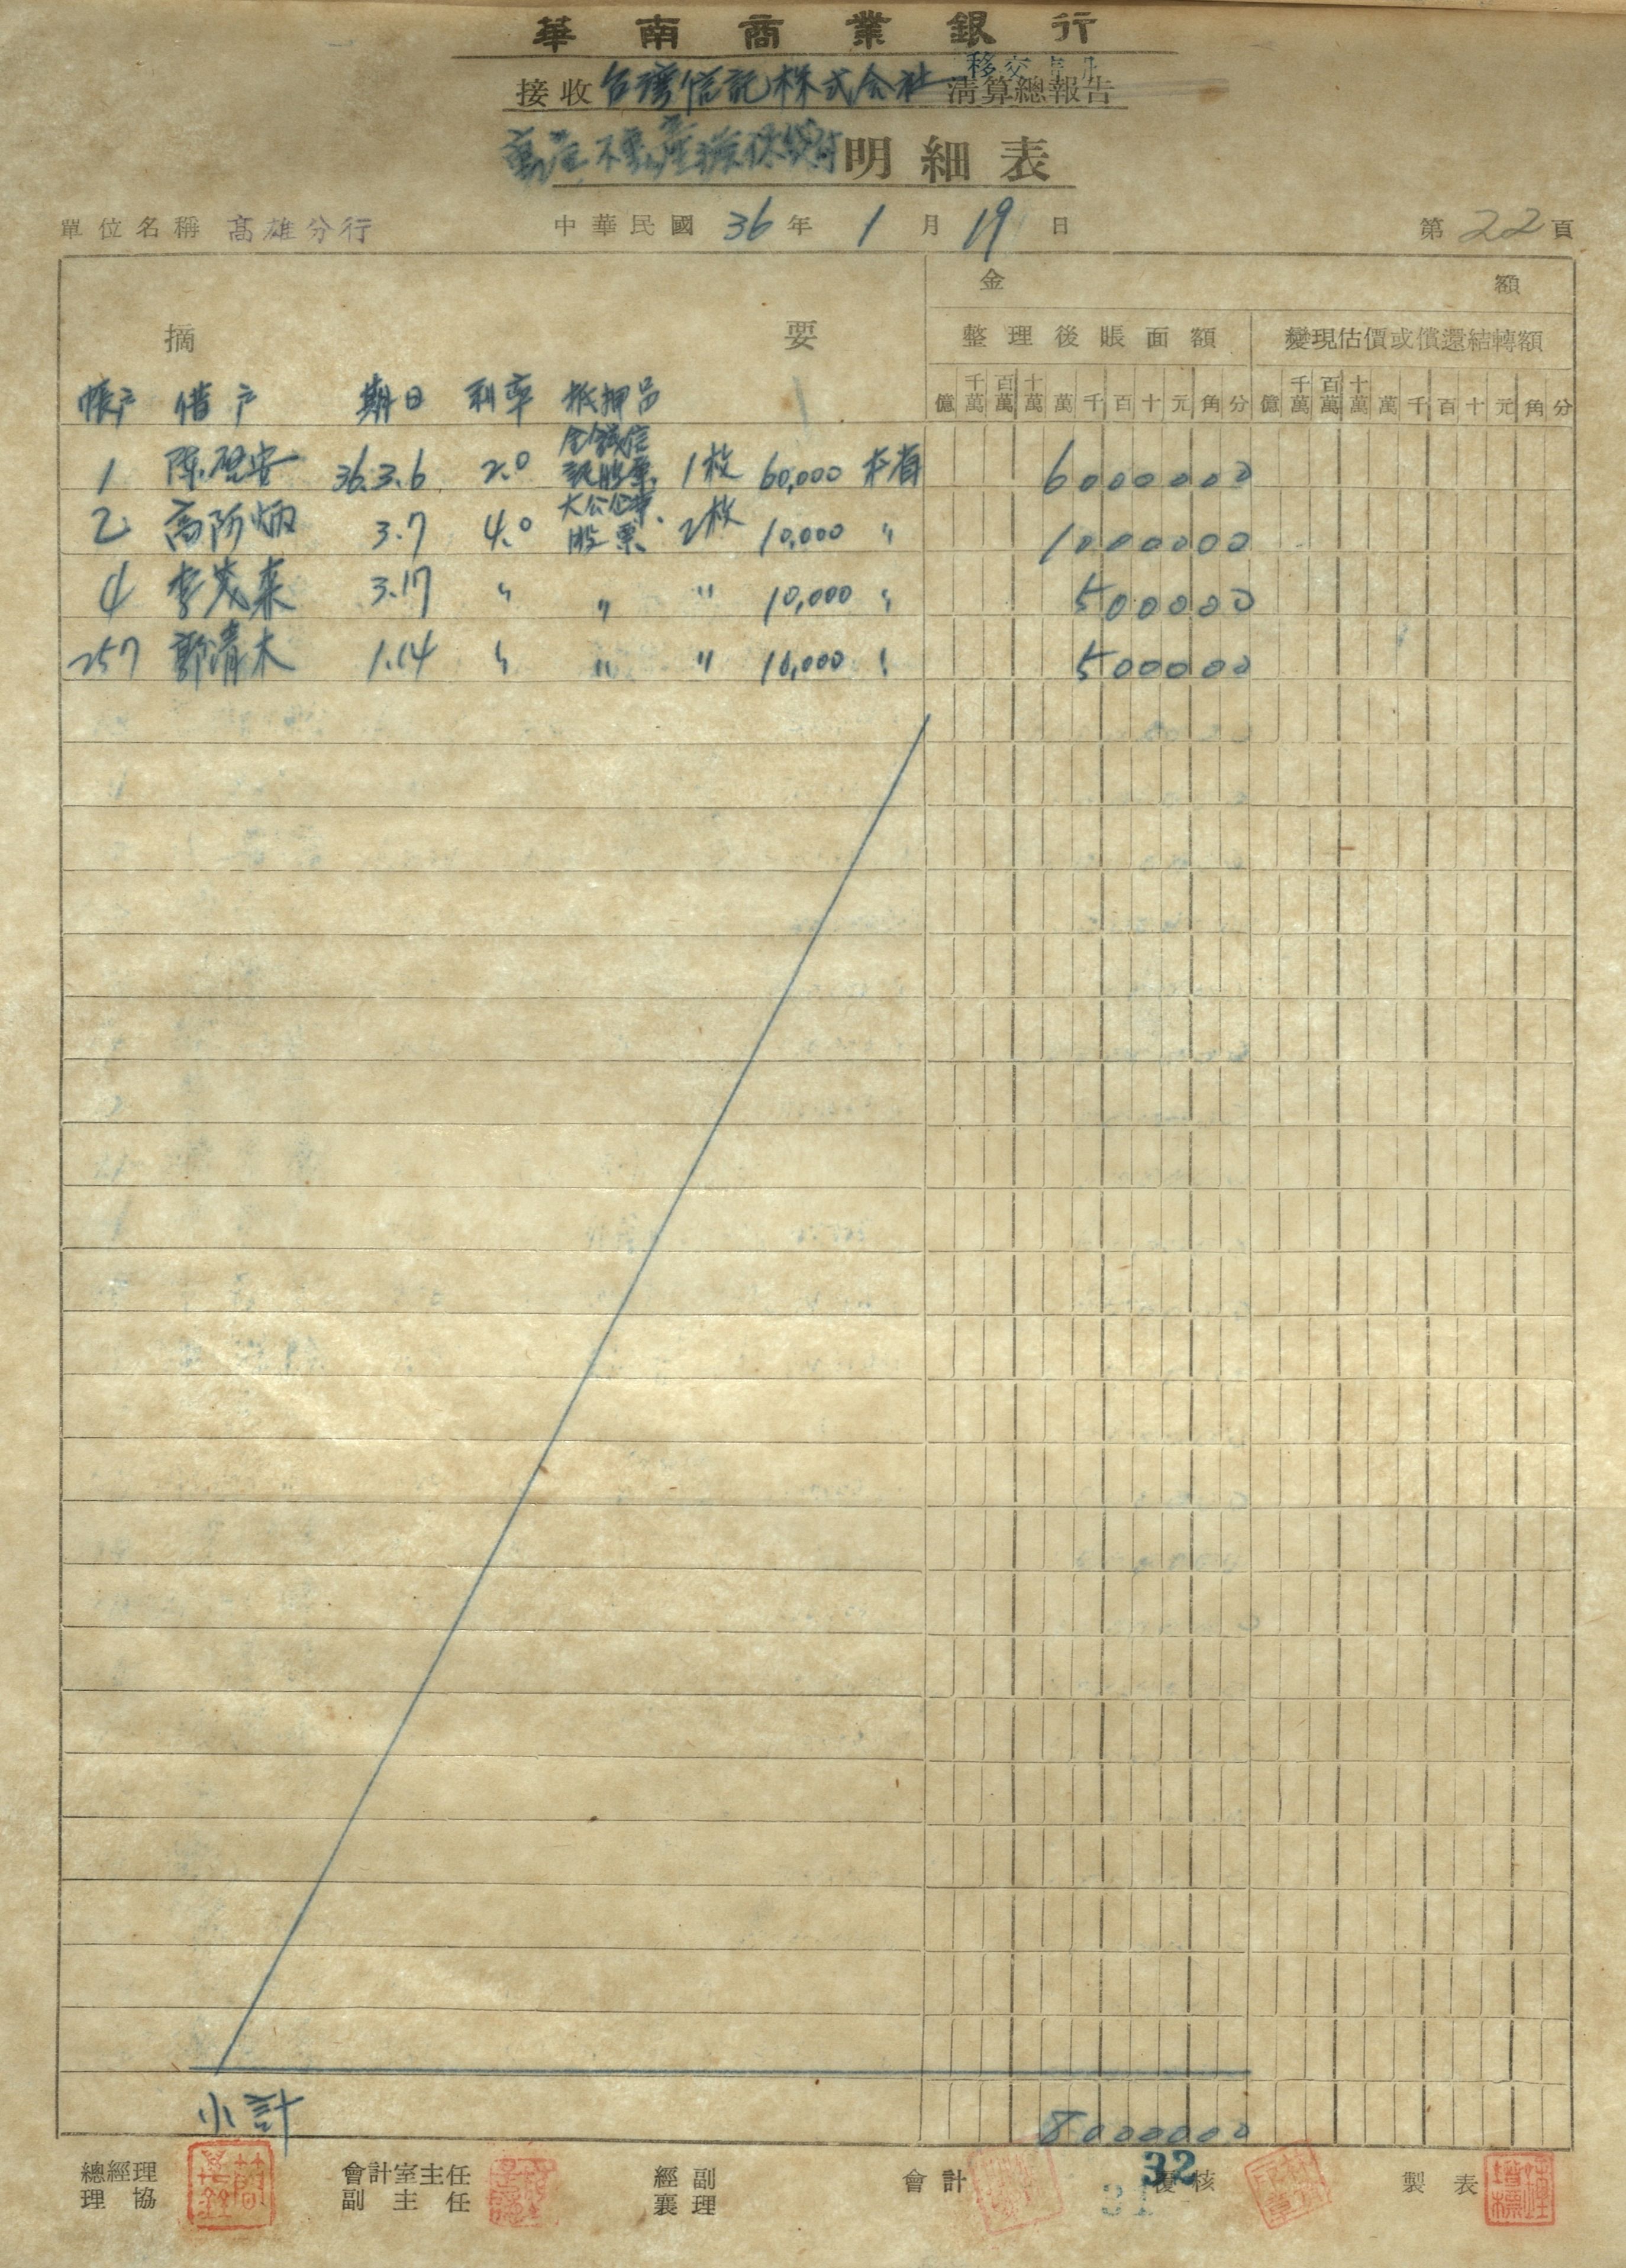 華南商業銀行
接收台灣信託株式会社清算總報告
移交
不動產擔保貸付明細表
單位名稱 高雄分行 中華民國 36 年 1 月 19 日 第 22 頁
摘要 金額
整理後賬面額 變現估價或償還結轉額
億 千萬 百萬 十萬 萬 千 百 十 元 角 分 億 千萬 百萬 十萬 萬 千 百 十 元 角 分
帳户 借户 期日 利率 抵押品
1 陳啓安 36.3.6 2.0 信託股票 1枚 60,000 本省 6000000
2 高 炳 3.7 4.0 大公企業股票 2枚 10,000 〃 1000000
4 李茂東 3.17 〃 〃 〃 10,000 〃 500000
257 郭清木 1.14 〃 〃 〃 10,000 〃 500000
小計 8000000
總經理 會計室主任 經副 會計 覆核 製表
理協 副主任 襄理
32
31